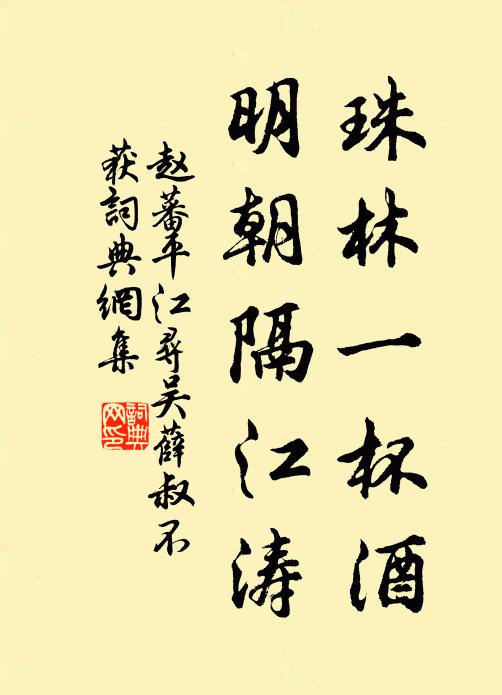 珠林一杯酒
明朝隔江涛
赵蕃平江寻吴薛叔不
获詞典網集
詞典
网印